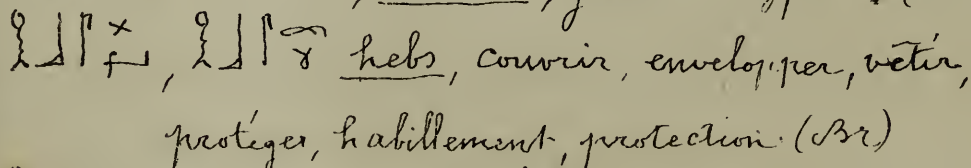 𓎛𓃀𓋴, 𓎛𓃀𓋴 hebs, couvrir, envelopper, vêtir,
protéger, habillement, protection (Br)